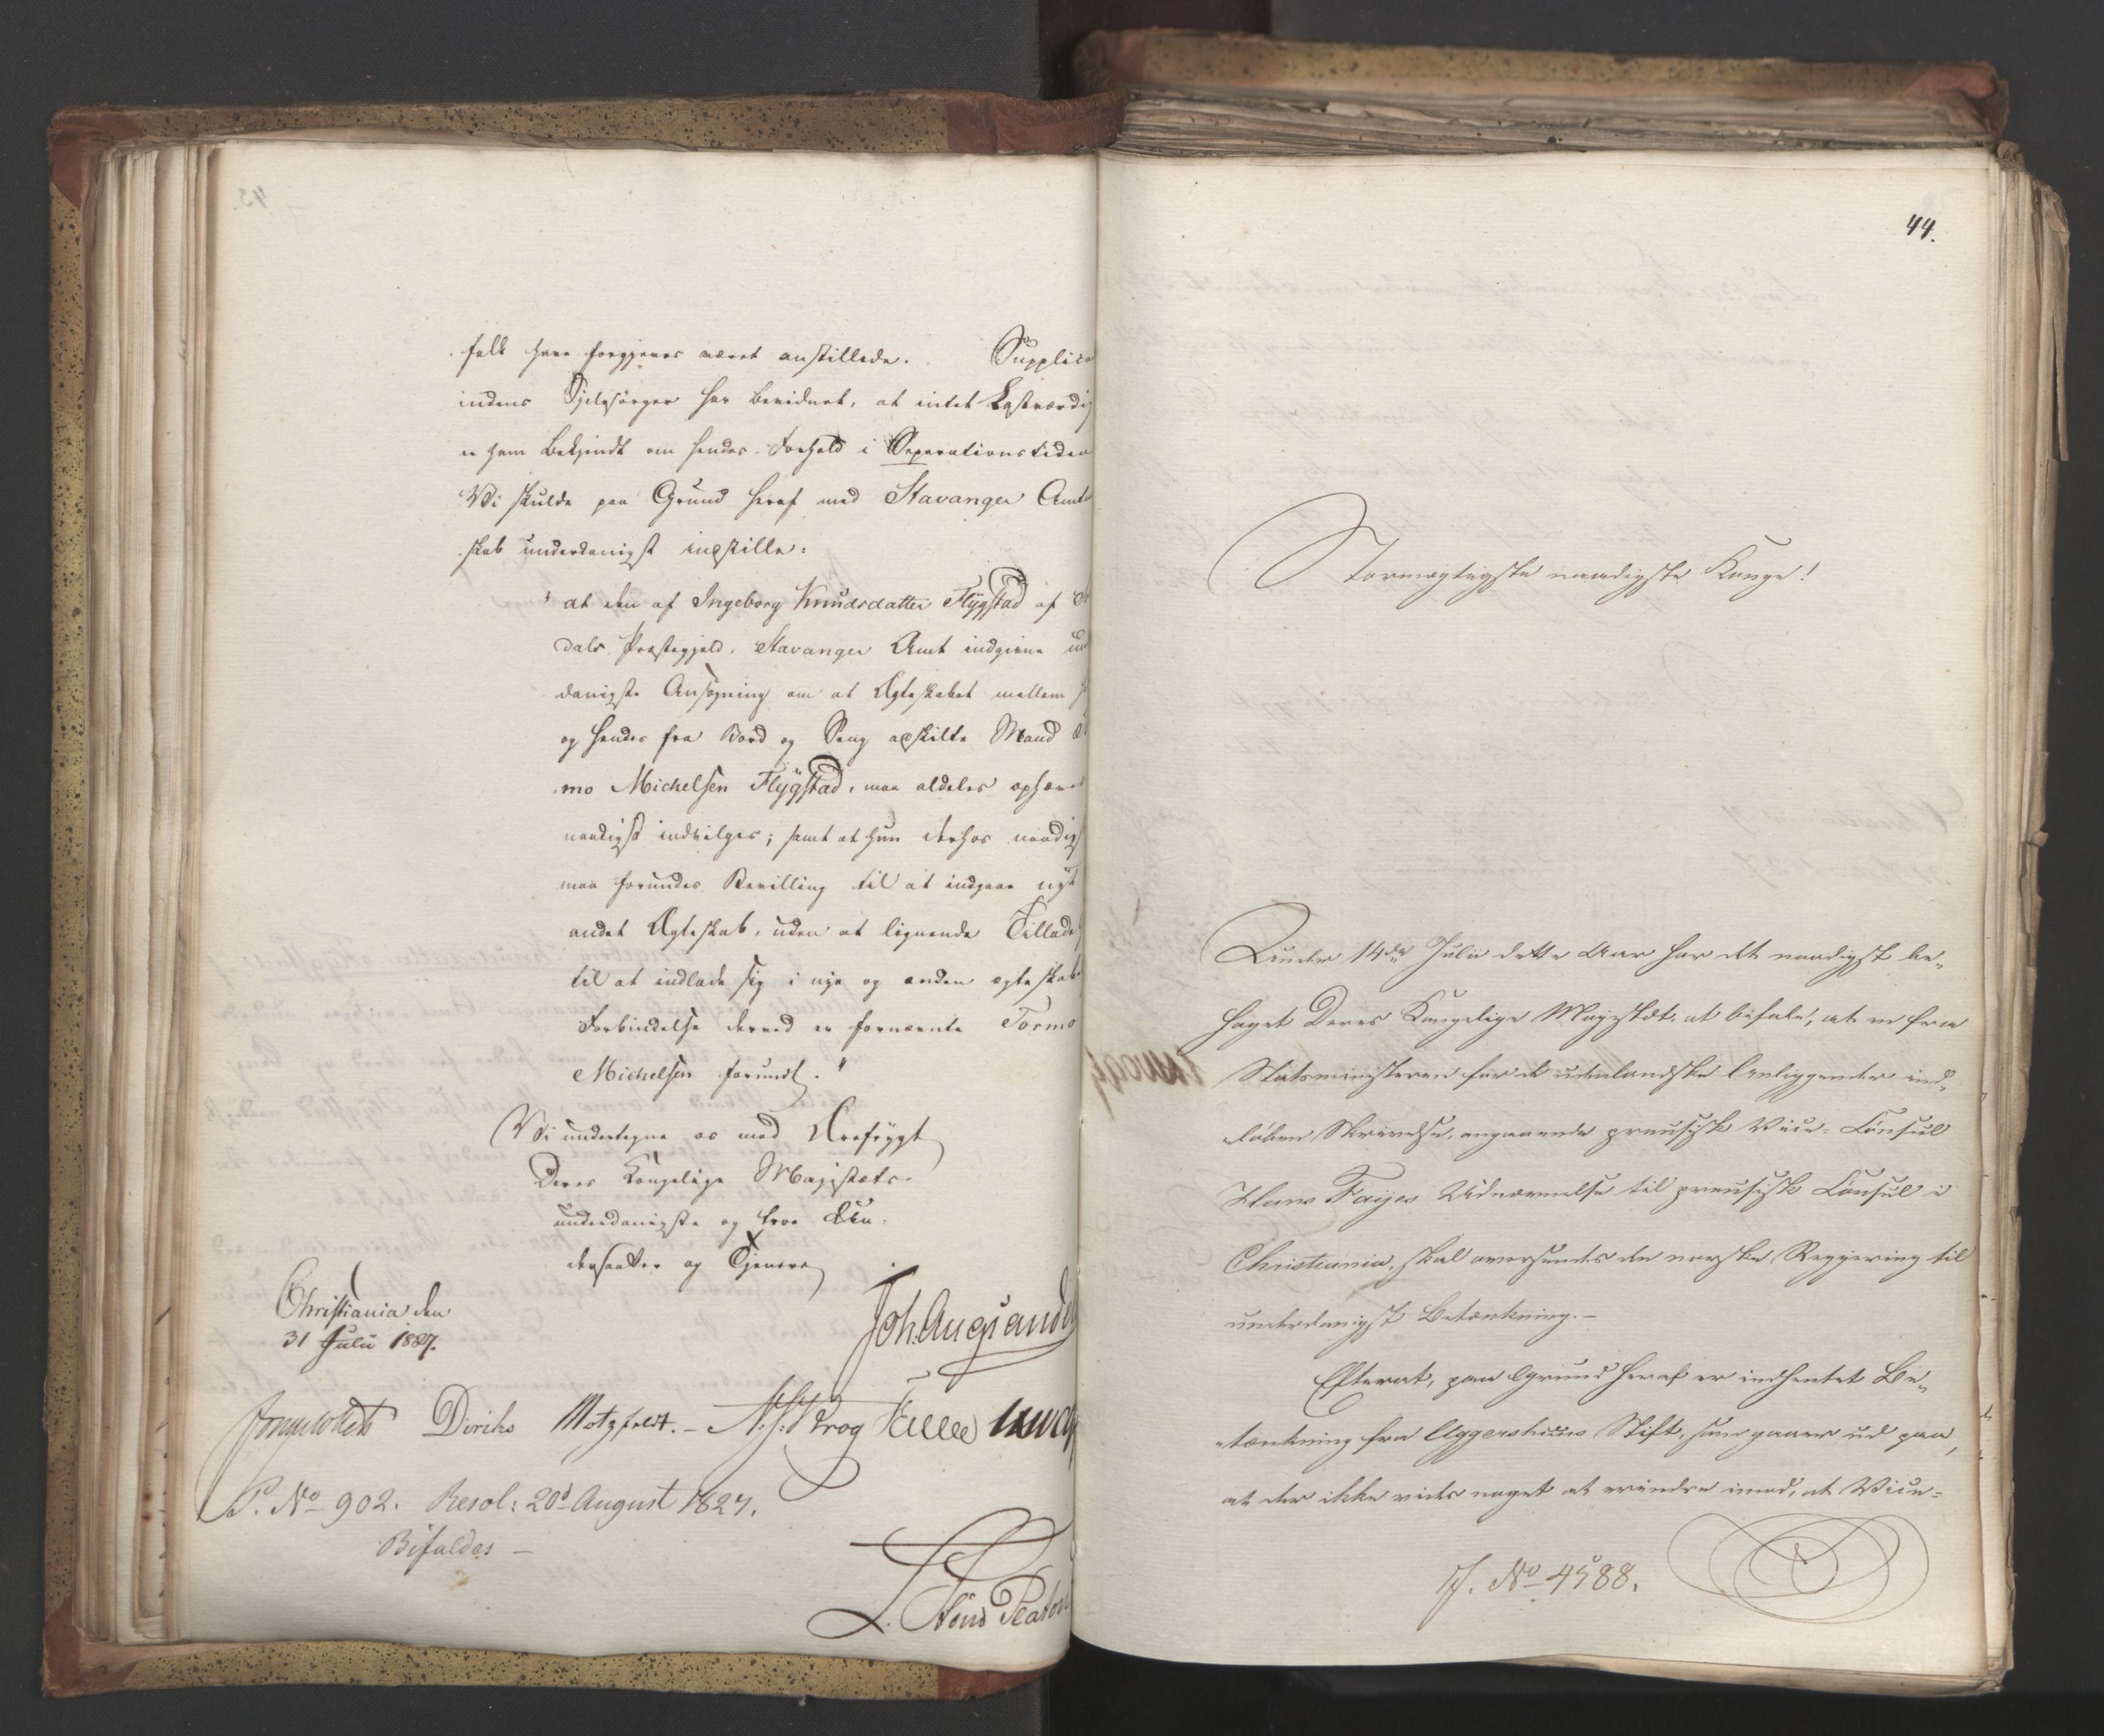 folk have forgjeves været anstillede. Supplica
indens Sjelesörger har bevidnet, at intet Lastværdig
er ham bekjendt om hendes Forhold i Separationstiden
Vi skulde paa Grund heraf med Stavanger Amt
skab underdanigst indstille:
"at den af Ingeborg Knudsdatter Flÿgstad af
dals Præstegjeld, Stavanger Amt indgivne un
danigste Ansøgning om at Ægteskabet mellem h
og hendes fra Bord og Seng adskilte Mand
mo Michelsen Flÿgstad, maa aldeles ophæves
naadigst indvilges; samt at hun derhos naadigst
maa forundes Bevilling til at indgaae nyt
andet Ægteskab, uden at lignende Tillade
til at indlade sig i nye og anden ægteskab
Forbindelse derved er fornævnte Tormo
Michelsen forundt."
Vi undertegne os med Ærefrygt
Deres Kongelige Majestæts
underdanigste og troe Un
dersaatter og Tjenere
Christiania den
31 Julii 1827.
Joh. Aug. Sande
Diriks Motzfeldt. N. J. Krog
P. No 902. Resol: 20d August 1827.
Bifaldes
44.
Stormægtigste naadigste Konge!
Under 14de Julii dette Aar har det naadigst be-
haget Deres Kongelige Majestæt at befale, at en fra
Statsministeren for de udenlandske Anliggender ind-
løben Skrivelse, angaaende preussisk Vice-Consul
Hans Fayes Udnævnelse til preussisk Consul i
Christiania, skal oversendes den norske Regjering til
underdanigst Betænkning.
Efterat, paa Grund heraf er indhentet Be-
tænkning fra Aggershuus Stift, som gaaer ud paa,
at der ikke vides noget at erindre imod, at Vice-
J. No 4588.